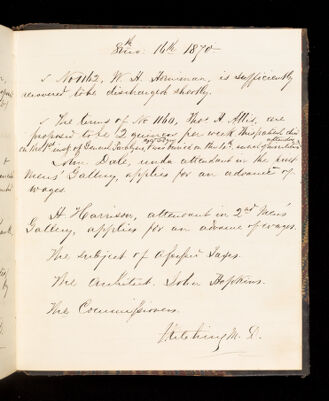 16th 1870
No 1162, W. H. Horseman, is sufficiently
recovered to be discharged shortly.
The terms of No 1164, Thos H Allis, are
proposed to be 2 guineas per week This patient died
on the 1st inst of General Paralysis,
John Dale, under attendant in the first
Men's Gallery, applies for an advance of
wages.
H Harrison, attendant in 2nd Men's
Gallery, applies for an advance of wages.
The subject of
The Architect. John Hopkins.
The Commissioners.
Kitching M. D.